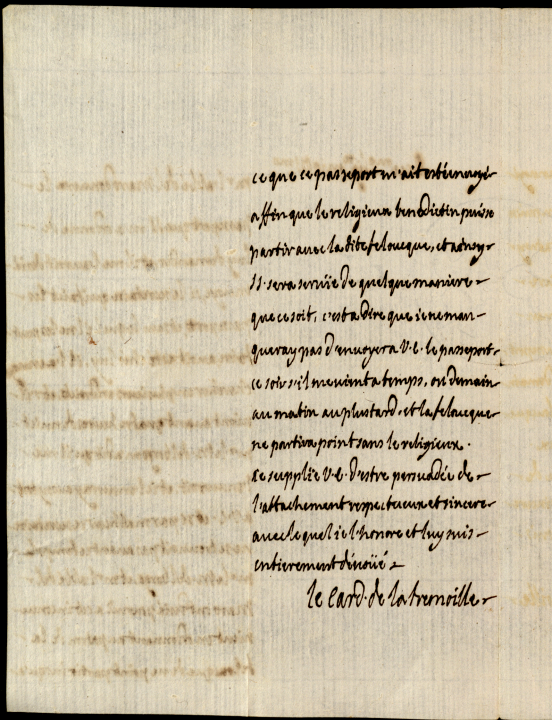 ce que ce passeport m'ait esté envoyé
affin que le religieux benedictin puisse
partir avec la dite felouque, et ainsy
sera servie de quelque maniere
que ce soit, c'est a dire que ie ne man-
queray pas d'envoyer a V.E. le passeport
ce soir s'il me vient a temps, ou demain
au matin au plus tard, et la felouque
ne partira point sans le religieux.
Je supplie V.E. d'estre persuadée de
l'attachement respectueux et sincere
avec lequel ie l'honore et luy suis
entierement dévoüé
le Card. de la tremoille